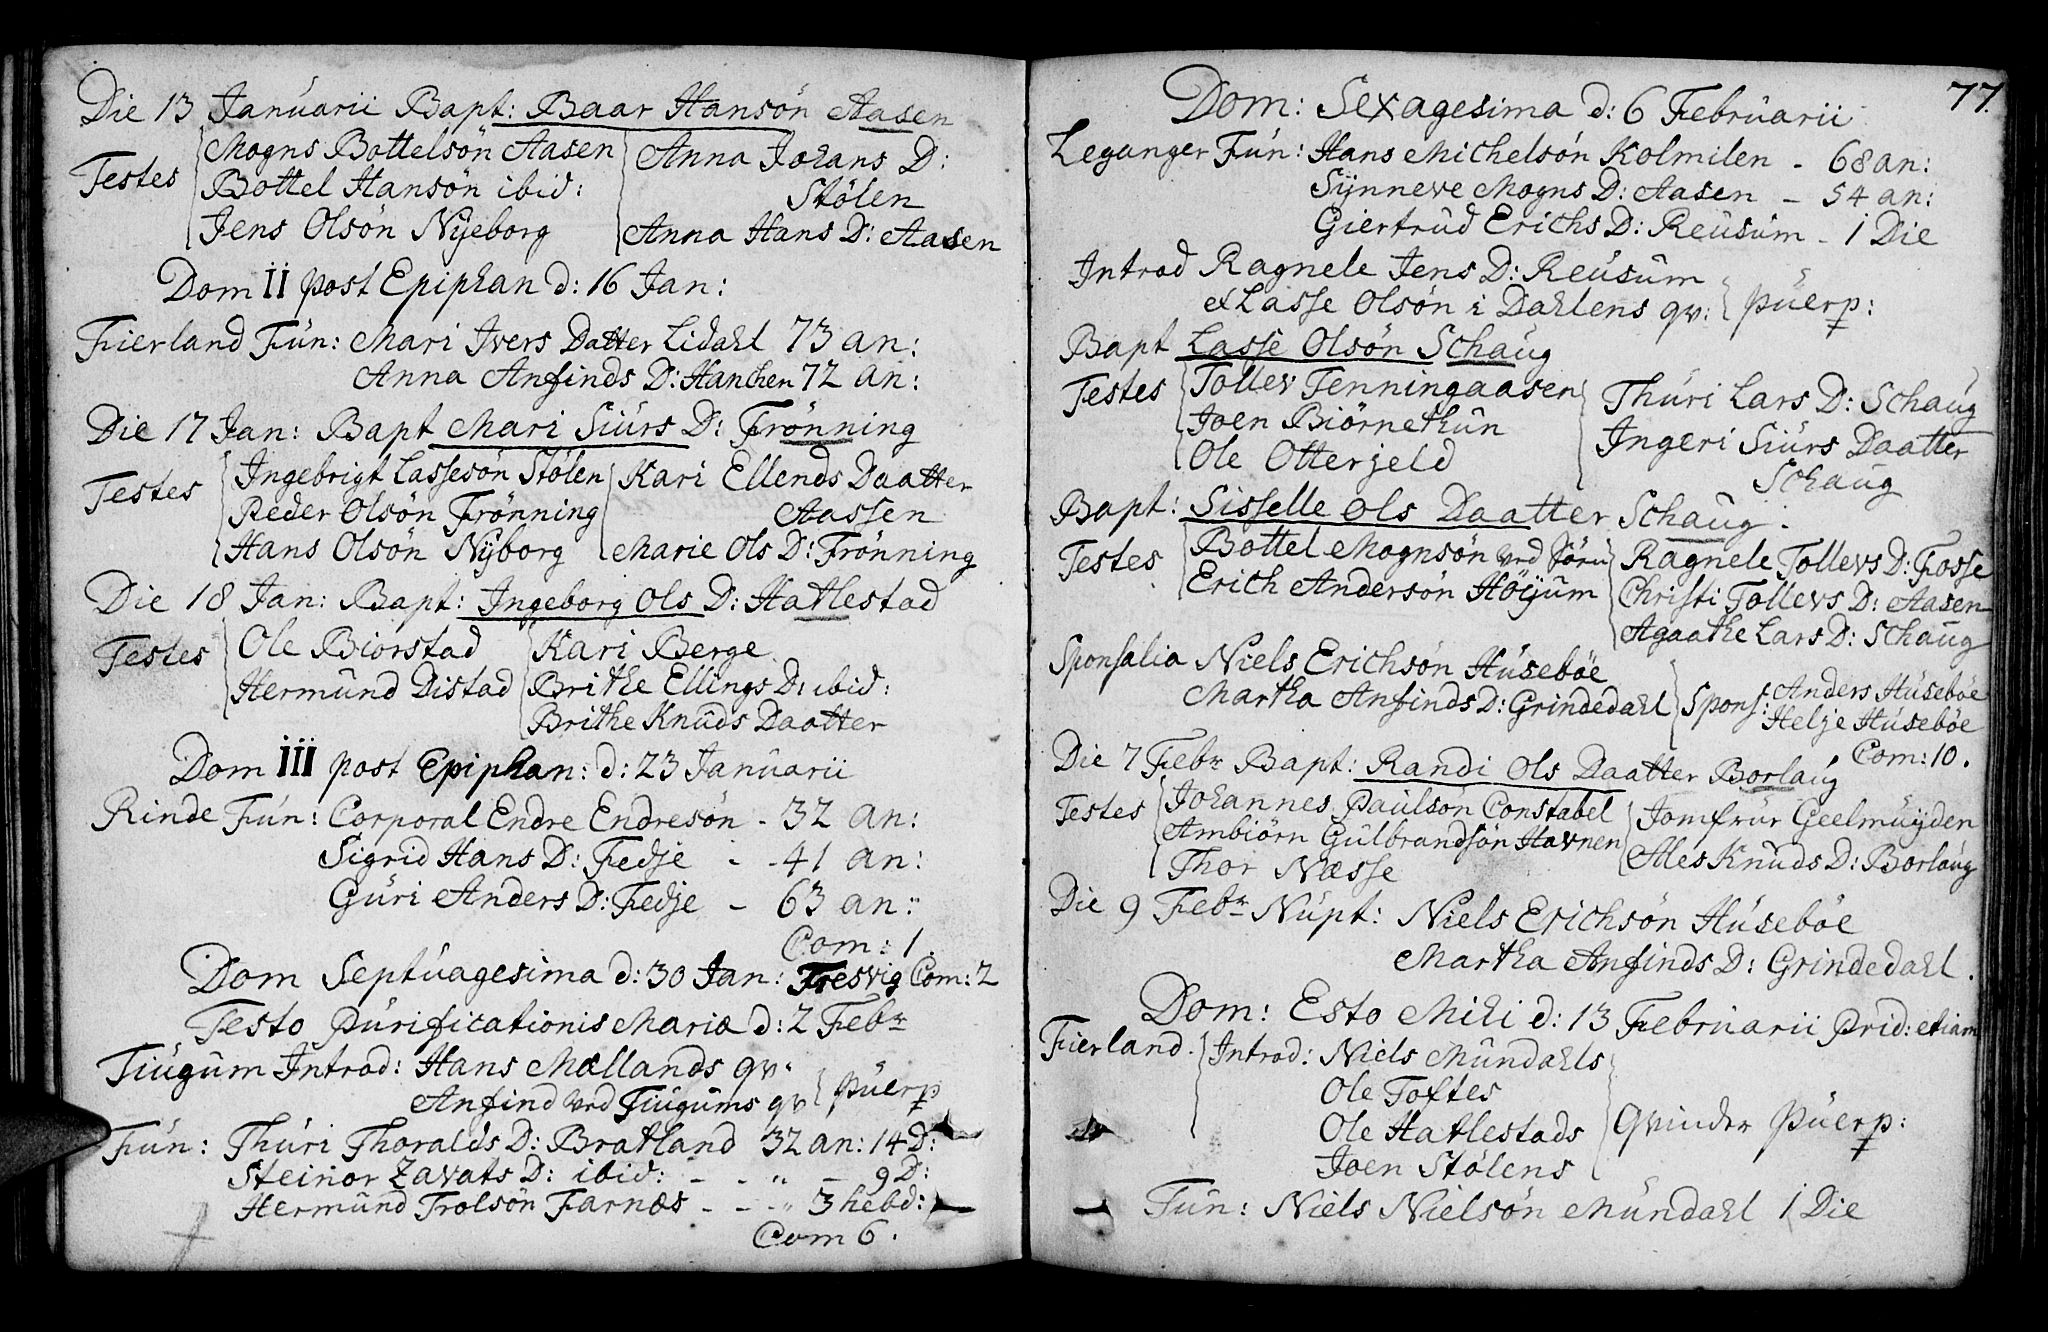 Die 13 Januarii Bapt: Baar Hansön Aasen
Testes
Mogns Bottelsön Aasen
Bottel Hansön ibid:
Jens Olsön Nyeborg
Anna Johans D:
Stölen
Anna Hans D: Aasen
Dom II post Epiphan d: 16 Jan:
Fierland Fün: Mari Ivers Datter Lidahl 73 an:
Anna Anfinds D: Hanchen 72 an:
Die 17 Jan: Bapt Mari Siürs D: Frönning
Testes
Ingebrigt Lassesön Stölen
Peder Olsön Frönning
Hans Olsön Nyborg
Kari Ellends Daatter
Aassen
Marie Ols D: Frönning
Die 18 Jan: Bapt: Ingeborg Ols D: Hatlestad
Testes
Ole Biorstad
Hermund Distad
Kari Berge
Brithe Ellings D: ibid:
Brithe Knuds Daatter
Dom III post Epiphan: d: 23 Januarii
Rinde Fün: Corporal Endre Endresön - 32 an:
Sigrid Hans D: Fedje - - 41 an:
Guri Anders D: Fedje - 63 an:
Com: 1
Dom Septuagesima d: 30 Jan: Fresvig Com: 2
Festo Purificationis Mariæ d: 2 Febr
Tiugum Introd: Hans Mællands qv.
Anfind ved Tiugums qv
puerp
Fün: Thuri Thoralds D: Bratland 32 an: 14 D:
Steinor Zavats D: ibid: - - " - 9 D:
Hermund Trolsön Farnæs - - " 3 hebd:
Com 6.
77.
Dom: Sexagesima d: 6 Februarii
Leganger Fün: Hans Michelsön Kolmilen - 68 an:
Synneve Mogns D: Aasen - 54 an:
Giertrud Erichs D: Reusum - 1 Die
Introd Ragnele Jens D: Reusum
et Lasse Olsön i Dahlens qv:
puerp:
Bapt Lasse Olsön Schaug
Testes
Tollev Fenningaasen
Joen Biörnethun
Ole Otterjeld
Thuri Lars D: Schaug
Ingeri Siurs Daatter
Schaug
Bapt: Sisselle Ols Daatter Schaug.
Testes
Bottel Mognsön ved Söen
Erich Andersön Höyum
Ragnele Tollevs D: Fosse
Christi Tollevs D: Aasen
Agaathe Lars D: Schaug
Sponsalia Niels Erichsön Huseböe
Martha Anfinds D: Grindedahl
Spons:
Anders Huseböe
Helje Huseböe
Com: 10.
Die 7 Febr Bapt: Randi Ols Daatter Borlaug
Testes
Johannes Paulsön Constabel
Ambiörn Gulbrandsön Havnen
Thor Næsse
Jomfrur Geelmuyden
Ales Knuds D: Borlaug
Die 9 Febr Nupt: Niels Erichsön Huseböe
Martha Anfinds D: Grindedahl.
Dom: Esto Mihi d: 13 Februarii Prid: etiam
Fierland.
Introd: Niels Mundahls
Ole Toftes
Ole Hatlestads
Joen Stölens
Qvinder Puerp:
Fun: Niels Nielsön Mundahl 1 Die